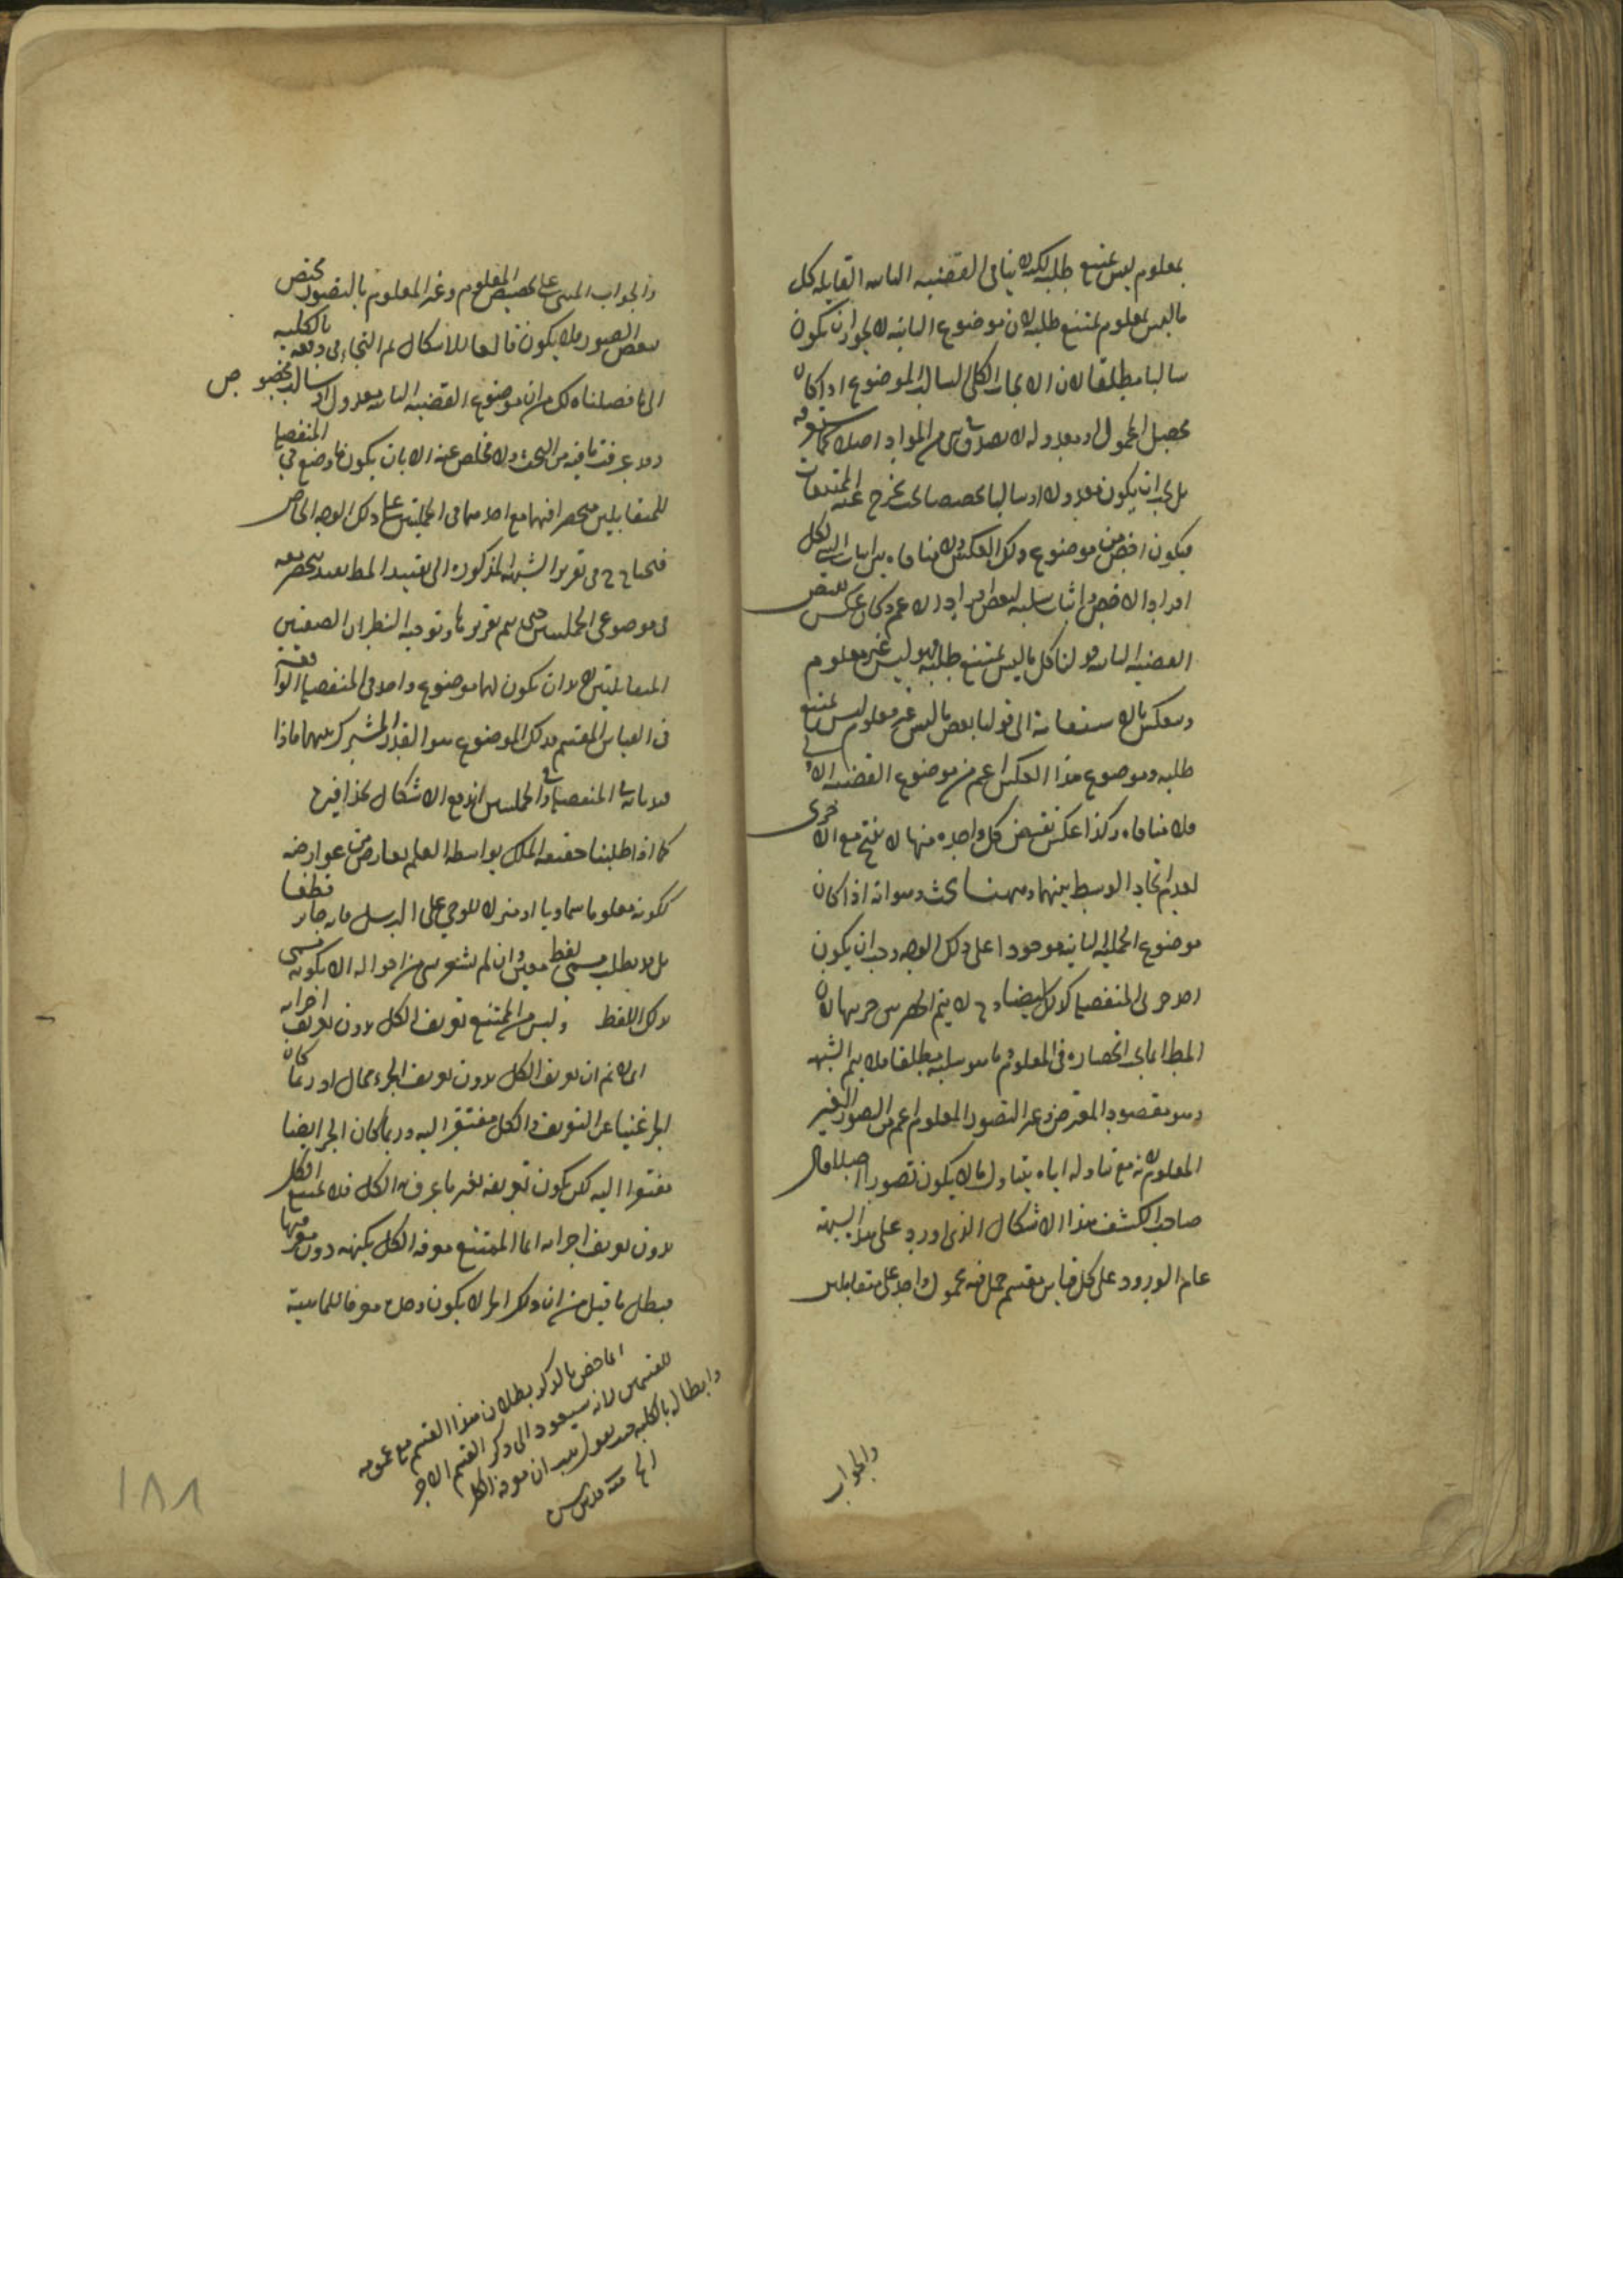 بمعلوم ليس يمتنع طلبه لكنه لا ينافى القضيه الثانيه القايله كل
ما ليس بمعلوم يمتنع طلبه لان موضوع الثانيه لا يجوز ان يكون
سالبا مطلقا لان الايجاب الكلى السالب الموضوع اذا كان
محصل المحمول او معدوله لا يصدق فى شى من المواد اصلا كما ستعرفه
بل يجب ان يكون معدولا او سالبا بحيث يخرج عنه الممتنعات
فيكون اخص من موضوع ذلك العكس ولا منافاه بين اثبات الشى لكل
افراد الاخص واثبات سلبه لبعض افراد الاعم وكان عكس نقيض
القضيه الثانيه قولنا كل ما ليس يمتنع طلبه فهو ليس غير معلوم
وينعكس بالاستقامة الى قولنا بعض ما ليس غير معلوم ليس يمتنع
طلبه وموضوع هذا العكس اعم من موضوع القضيه الاولى
فلا منافاه وكذا عكس نقيض كل واحده منها لا ينتج مع الاخرى
لعدم اتحاد الوسط بينهما وههنا بحث وهو انه اذا كان
موضوع الحمليه الثانيه موجودا على ذلك الوجه وجب ان يكون
احد جزئى المنفصله كذلك ايضا وح لا يتم الحصر بين جزئيها لان
المط انما فى انحصاره فى المعلوم وما هو سلبه مطلقا فلا يتم الشبهه
وهو مقصود المعترض وغير التصور المعلوم اعم من التصور الغير
المعلوم لانه مع تناوله اياه يتناول ما لا يكون تصورا اصلا قال
صاحب الكشف هذا الاشكال الذى اورد على هذا الشبهة
عام الورود على كل قياس مقسم حمل فيه محمول واحد على متقابلين
والجواب
والجواب المبنى على تخصيص المعلوم وغير المعلوم بالتصور مختص
ببعض الصور فلا يكون قالعا للاشكال ثم التجاء فى دفعه بالكليه
الى ما فصلناه لك من ان موضوع القضيه الثانيه معدول او سالب مخصوص
وقد عرفت ما فيه من البحث ولا مخلص عنه الا بان يكون ما وضع فى المنفصله
للمتقابلين منحصرا فيهما مع احدهما فى الحمليتين على ذلك الوجه الخاص
فيحتاج ح فى تقرير الشبهه المذكوره الى تقييد المط بقيد ينحصر معه
فى موضوعى الحمليتين حتى يتم تقريرها وتوجيه النظر ان الصفتين
المتقابلتين لابد ان يكون لهما موضوع واحد فى المنفصله الواقعة
فى القياس المقسم وذلك الموضوع هو القدر المشترك بينهما فاذا
قيدناه فى المنفصله وفى الحمليتين اندفع الاشكال بحذافيره
كما اذا طلبنا حقيقه الملك بواسطه العلم بعارض من عوارضه
ككونه معلوما سماويا او منزلا للوحى على الرسل فانه جايز قطعا
بل قد يطلب مسمى لفظ معين وان لم نشعر بشى من احواله الا بكونه مسمى
لذلك اللفظ وليس من الممتنع تعريف الكل بدون تعريف اجزائه
اى لا نم ان تعريف الكل بدون تعريف الجزء محال اذ ربما كان
الجزء غنيا عن التعريف والكل مفتقر اليه وربما كان الجزء ايضا
مفتقرا اليه لكن يكون تعريفه بغير ما عرف به الكل فلا يمتنع تعريف الكل
بدون تعريف اجزائه انما الممتنع معرفه الكل بكنهه دون معرفتها
فبطل ما قيل من ان ذلك الجزء لا يكون وحده معرفا للماهية
انما خص بالذكر بطلان هذا القسم مع عمومه
للقسمين لانه سيعود الى ذكر القسم الاخر
وابطاله بالكليه حيث يقول بعد ان معرفه الكل
الخ منه قدس سره
١٨٨